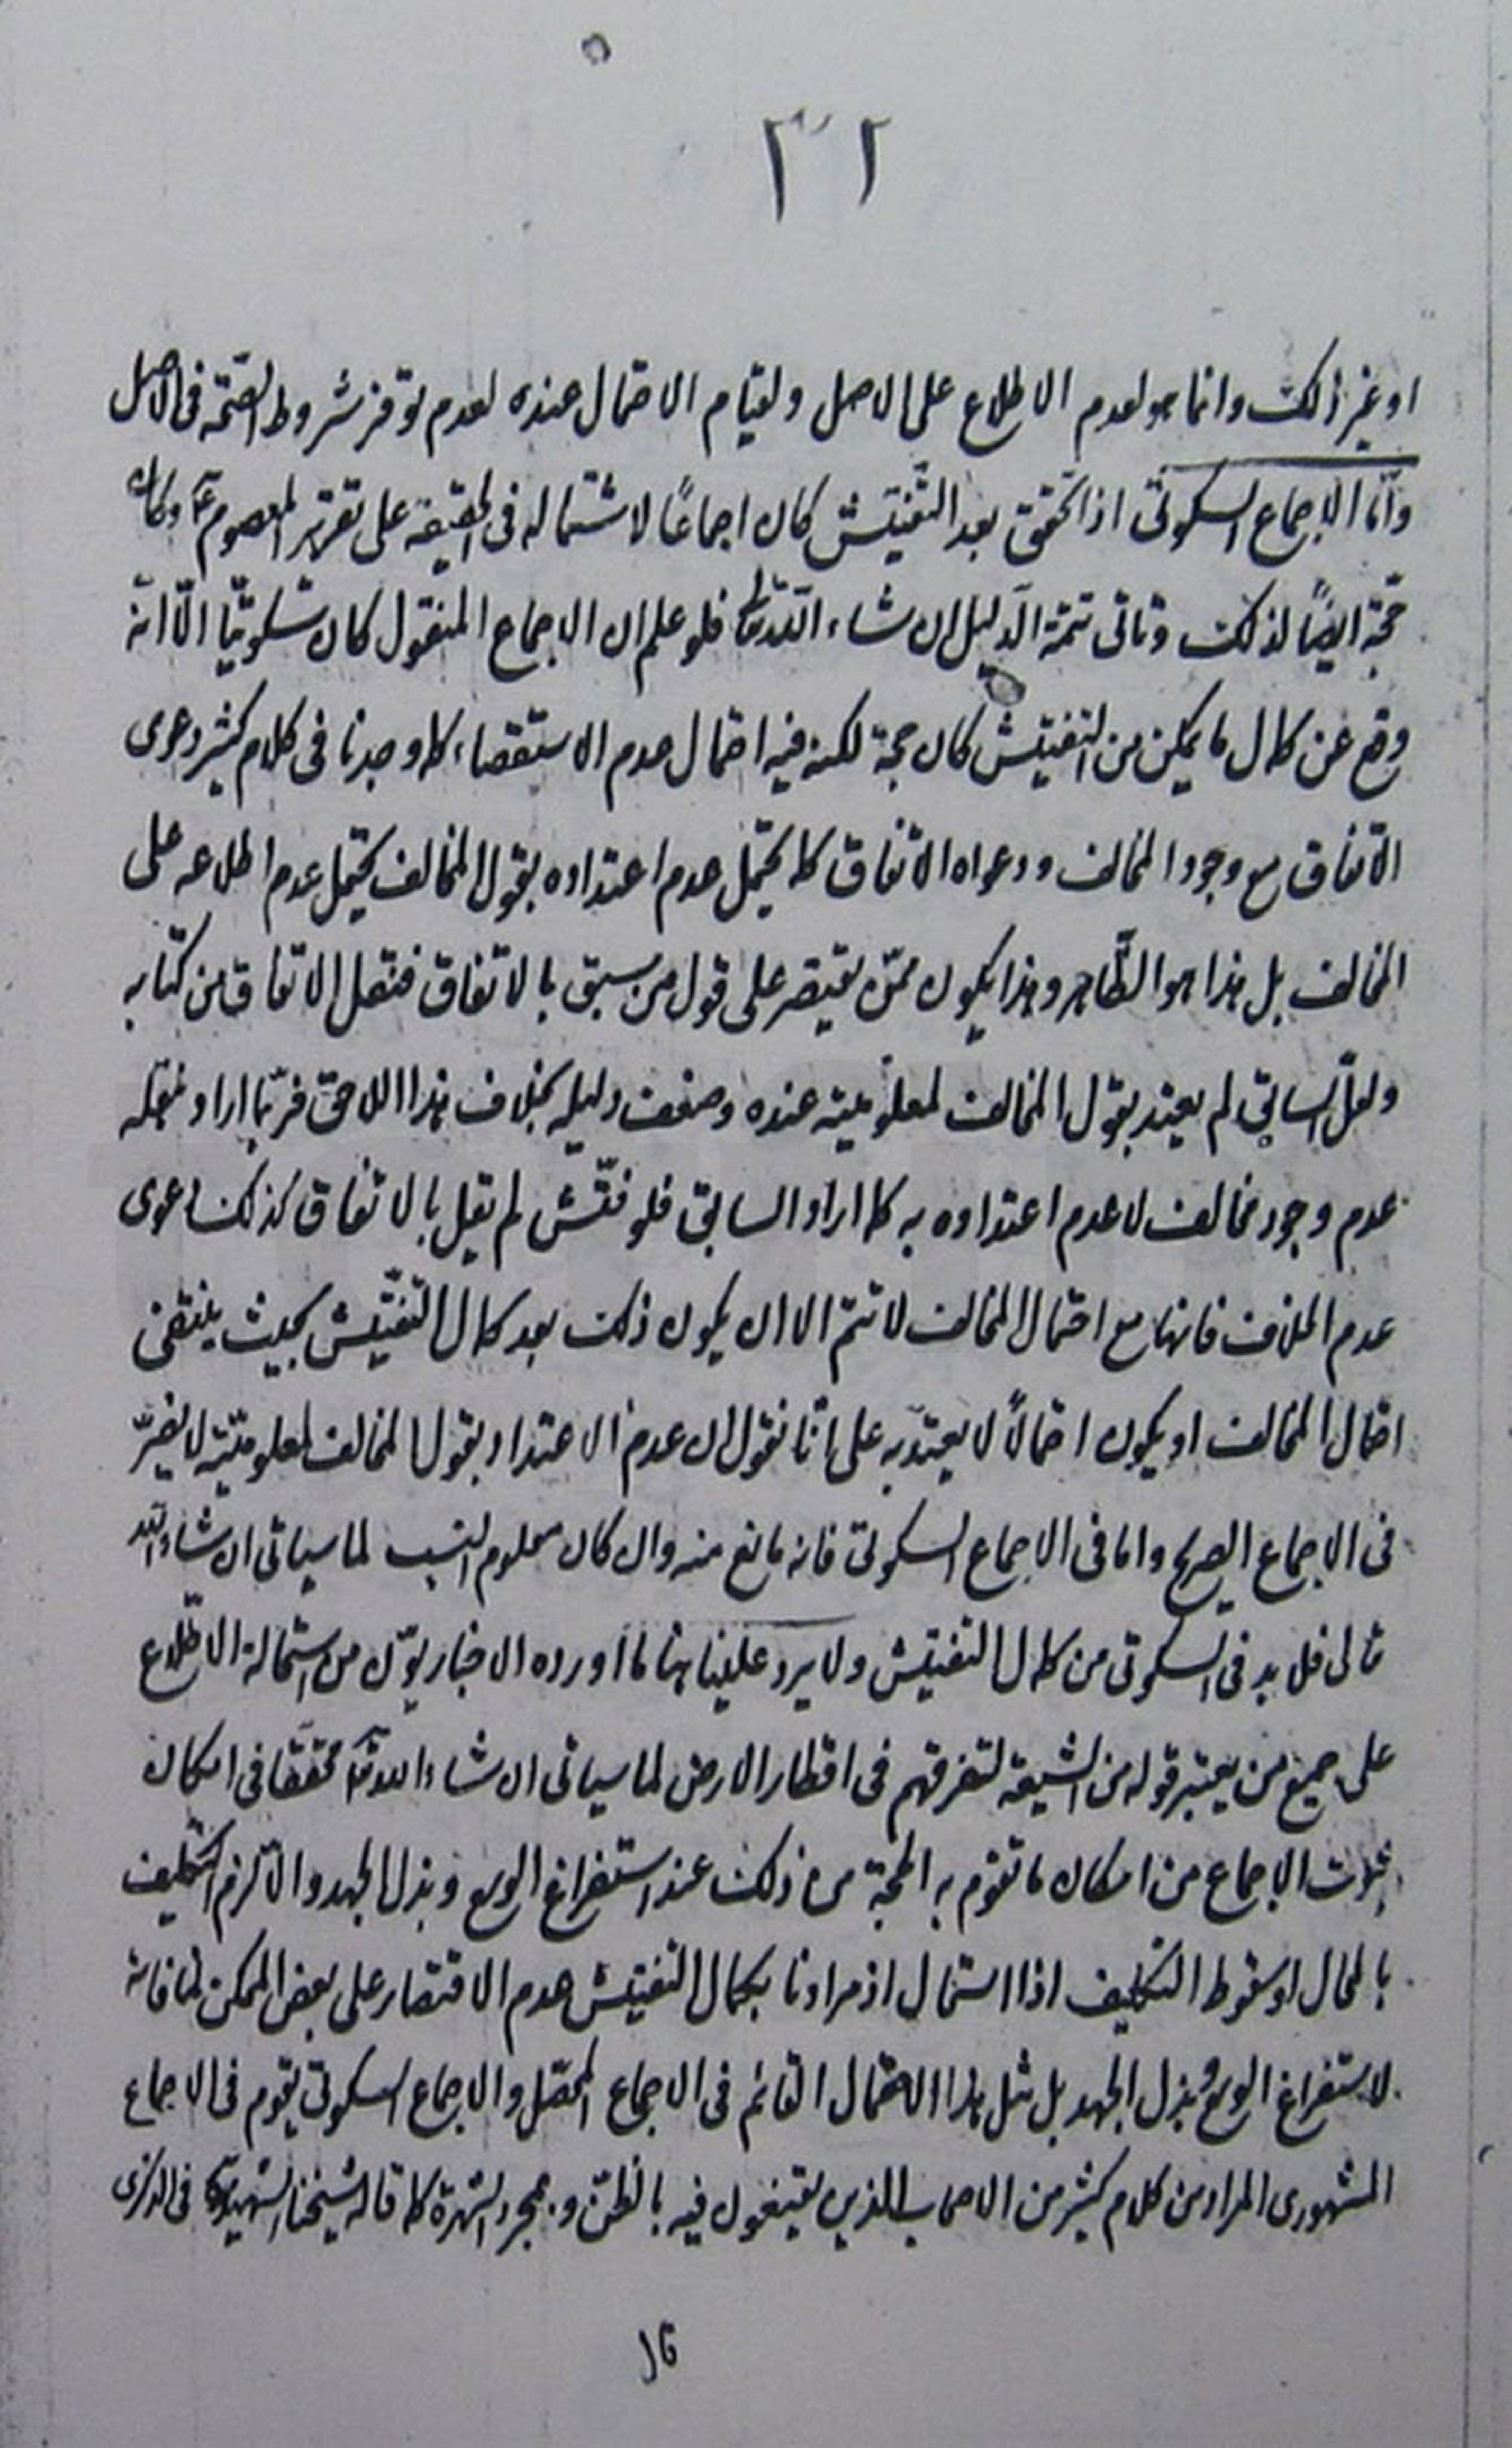 ٢٢
او غير ذلك وانما هو لعدم الاطلاع على الاصل ولقيام الاحتمال عنده لعدم توفر شروط الصحة فى الاصل
وامّا الاجماع السكوتى اذا تحقق بعد التفتيش كان اجماعًا لاشتماله فى الحقيقة على تقرير المعصوم ع وكان
حجّة ايضًا لذلك وتاتى تتمة الدّليل ان شاء اللّه تعالى فلو علم ان الاجماع المنقول كان سكوتيّا الّا انّه
وقع عن كمال ما يمكن من التفتيش كان حجة لكنه فيه احتمال عدم الاستقصاء كما وجدنا فى كلام كثير دعوى
الاتفاق مع وجود المخالف ودعواه الاتفاق كما يحتمل عدم اعتداده بقول المخالف يحتمل عدم اطلاعه على
المخالف بل هذا هو الظّاهر وهذا يكون ممّن يقتصر على قول من سبق بالاتفاق فنقل الاتفاق من كتابه
ولعلّ السابق لم يعتد بقول المخالف لمعلوميته عنده وضعف دليله بخلاف هذا اللاحق فربّما اراد بنقله
عدم وجود مخالف لا عدم اعتداده به كما اراد السابق فلو فتّش لم يقل بالاتفاق كذلك دعوى
عدم الخلاف فانها مع احتمال المخالف لا تتم الا ان يكون ذلك بعد كمال التفتّيش بحيث ينتفى
احتمال المخالف او يكون احتمالاً لا يعتدّ به على انّا نقول ان عدم الاعتداد بقول المخالف لمعلوميّته لا يضرّ
فى الاجماع الصريح واما فى الاجماع السكوتى فانه مانع منه وان كان معلوم النسب لما سياتى ان شاء اللّه
تعالى فلا بد فى السكوتى من كمال التفتيش ولا يرد علينا هنا ما اورده الاخباريّون من استحالة الاطّلاع
على جميع من يعتبر قوله من الشيعة لتفرقهم فى اقطار الارض لما سياتى ان شاء اللّه تعالى محقّقا فى امكان
ثبوت الاجماع من امكان ما تقوم به الحجة من ذلك عند استفراغ الوسع وبذل الجهد والا لزم التّكليف
بالمحال او سقوط التكليف اذا استحال اذ مرادنا بكمال التفتيش عدم الاقتصار على بعض الممكن لمنافاته
لاستفراغ الوسع وبذل الجهد بل مثل هذا الاحتمال القائم فى الاجماع المحصّل والاجماع السكوتى يقوم فى الاجماع
المشهورى المراد من كلام كثير من الاصحاب الذين يقنعون فيه بالظنّ وبمجرد الشهرة كما قاله شيخنا الشهيد ره فى الذكرى
قال